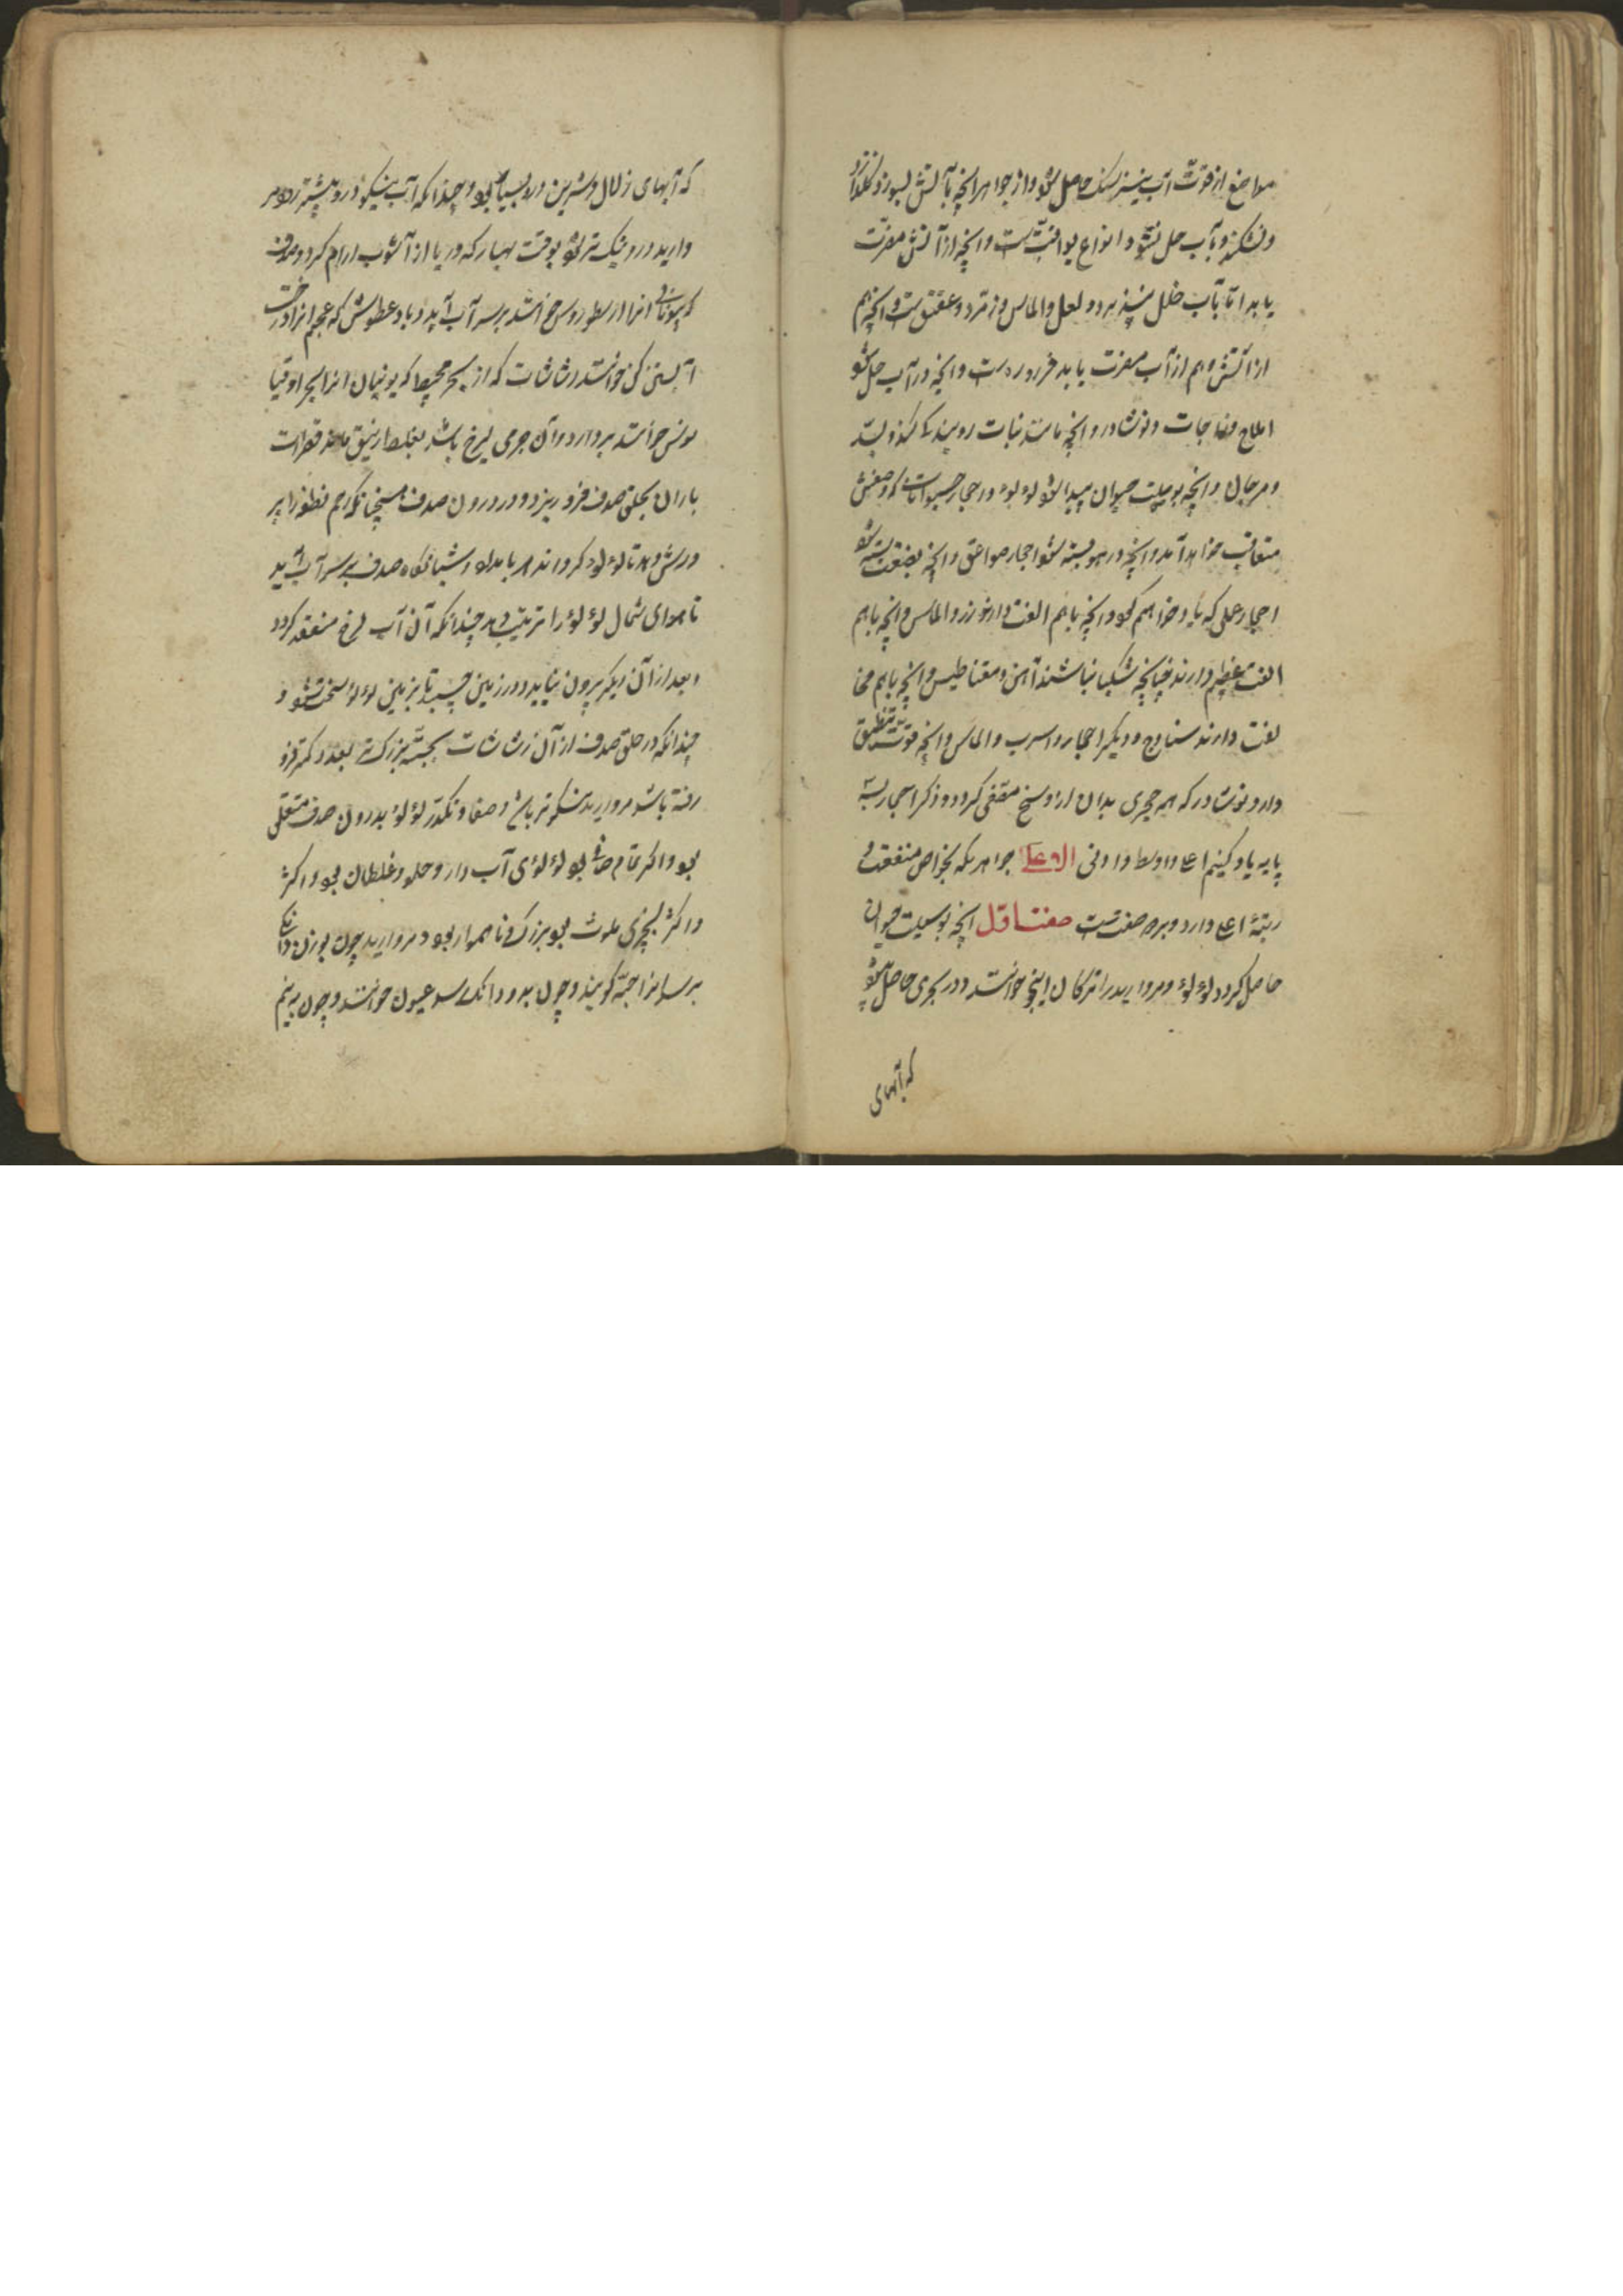 مواضع از قوت آب نیز سنگ حاصل شود و از جواهر آنچه بآتش بسوزد نگدازد
و نشکند و بآب حل نشود انواع یواقیت است و آنچه از آتش مضرت
یابد اما بآب خلل نپذیرد و لعل و الماس و زمرد و عقیق ست و آنچه هم
از آتش و هم از آب مضرت یابد است و آنچه در آب حل شود
املاح و زاجات و نوشادر و آنچه مانند نبات روید بسد
و مرجان و آنچه بوسیلت حیوان پیدا شود لؤلؤ و حجار حیوانات که وصفش
متعاقب خواهد آمد و آنچه در هوا بسته شود احجار صواعق و آنچه بصنعت بسته شود
احجار عملی که یاد خواهیم کرد و آنچه باهم الفت دارند زر و الماس و آنچه باهم
الفت عظیم دارند چنانچه شکیبا نباشند آهن و مقناطیس و آنچه باهم مخا
لفت دارند سنباده و دیگر احجار و اسرب و الماس و آنچه قوت
دارد نوشادر که هر حجری بدان از وسخ منقی گردد و ذکر احجار بسه
پایه یاد کنیم اعلی و اوسط و ادنی الاعلی جواهریکه بخواص منفعت
رتبهٔ اعلی دارد و بر صفت ست صفت اول آنچه بوسیلت حیوان
حاصل گردد لؤلؤ و مروارید را ترکان اینجو خوانند و در بحری حاصل شود
که آبهای
که آبهای زلال و شیرین درو بسیار بود و چندانکه آب نیکو درو بیشتر رود مر
وارید درو نیک تر شود بوقت بهار که دریا از آشوب آرام گیرد و صدف
که یونانی آنرا خوانند بر سر آب آید و باد که عجم آنرا درخت
آبستن کن خوانند رشاشات که از بحر محیط که یونانیان آنرا بحر اوقیا
نوس خوانند بردارد و آن جرمی لزج باشد بغلظ زیبق مانند قطرات
باران بحلق صدف فرو ریزد و در درون صدف همچنانکه رحم نطفه را پر
ورش دهد تا لؤلؤ گرداند هر بامداد و شبانگاه صدف بر سر آب آید
تا هوای شمال لؤلؤ را تربیت دهد چندانکه آن آب لزج منعقد گردد
و بعد از آن دیگر بیرون نیاید و در زمین چسبد تا بزمین لؤلؤ سخت شود و
چندانکه در حلق صدف از آن رشاشات بجثه بزرگ تر بعدد کمتر فرو
رفته باشد مروارید نیکوتر باشد و صفا و تکدر لؤلؤ بدرون صدف متعلق
بود و اگر تمام صافی بود لؤلؤی آب دار و حلو و غلطان بود و اگر
و اگر بچیزی ملوث بود بزرگ و ناهموار بود و مروارید چون بوزن دانگی
برسد آنرا حبه گویند و چون بدو دانگ رسد عیون خوانند و چون به نیم